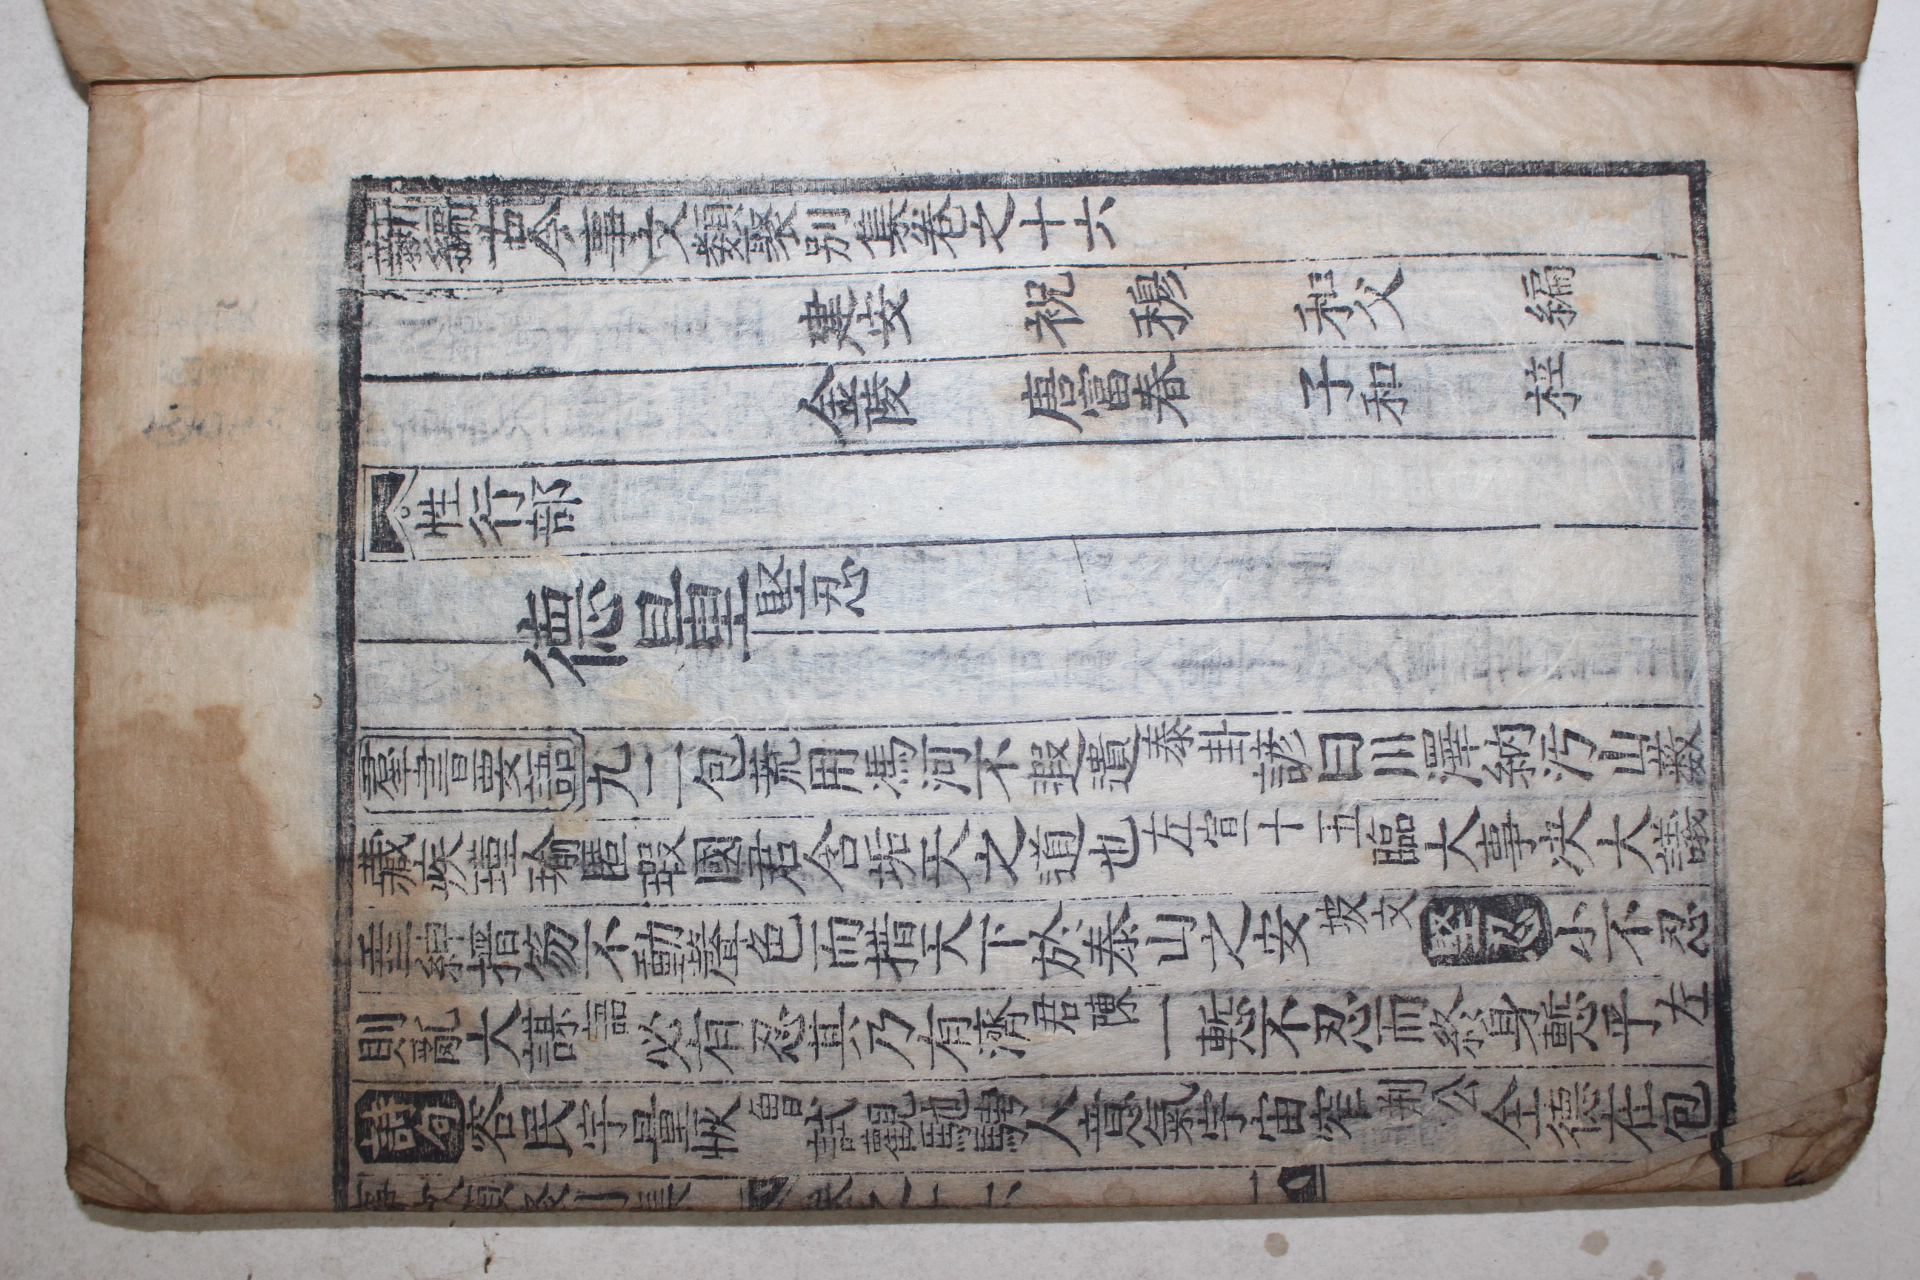 新編古今事文類聚別集卷之十六
建安 祝穆 和父 編
金陵 唐富春 子和 校
性行部
德量 堅忍
羣書要語 九二包荒用馮河不遐遺 泰卦 諺曰川澤納汚山藪
藏疾瑾瑜匿瑕國君含垢天之道也 左宣十五 臨大事决大議
垂紳搢笏不動聲色而措天下於泰山之安 坡文 堅忍 小不忍
則亂大謀 語 必有忍其乃有濟 君陳 一慙不忍而終身慙乎 左
詩句 容民宇量 試觀馳騁人意氣宇宙窄 荆公 全德在包